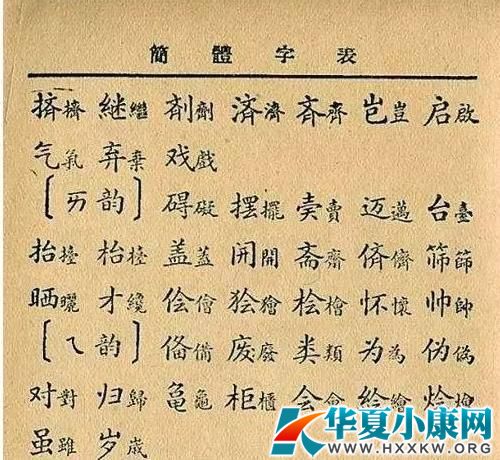 簡體字表
挤擠 継繼 剤劑 済濟 斉齊 岂豈 启啟
气氣 弃棄 戏戲
[ㄞ韵] 碍礙 摆擺 卖賣 迈邁 台臺
抬擡 枱檯 盖蓋 开開 斋齋 侪儕 筛篩
晒曬 才纔 侩儈 狯獪 桧檜 怀懷 帅帥
[ㄟ韵] 俻備 废廢 类類 为為 伪偽
对對 归歸 亀龜 柜櫃 会會 绘繪 烩燴
虽雖 岁歲
华夏小康网
WWW.HXXKW.ORG